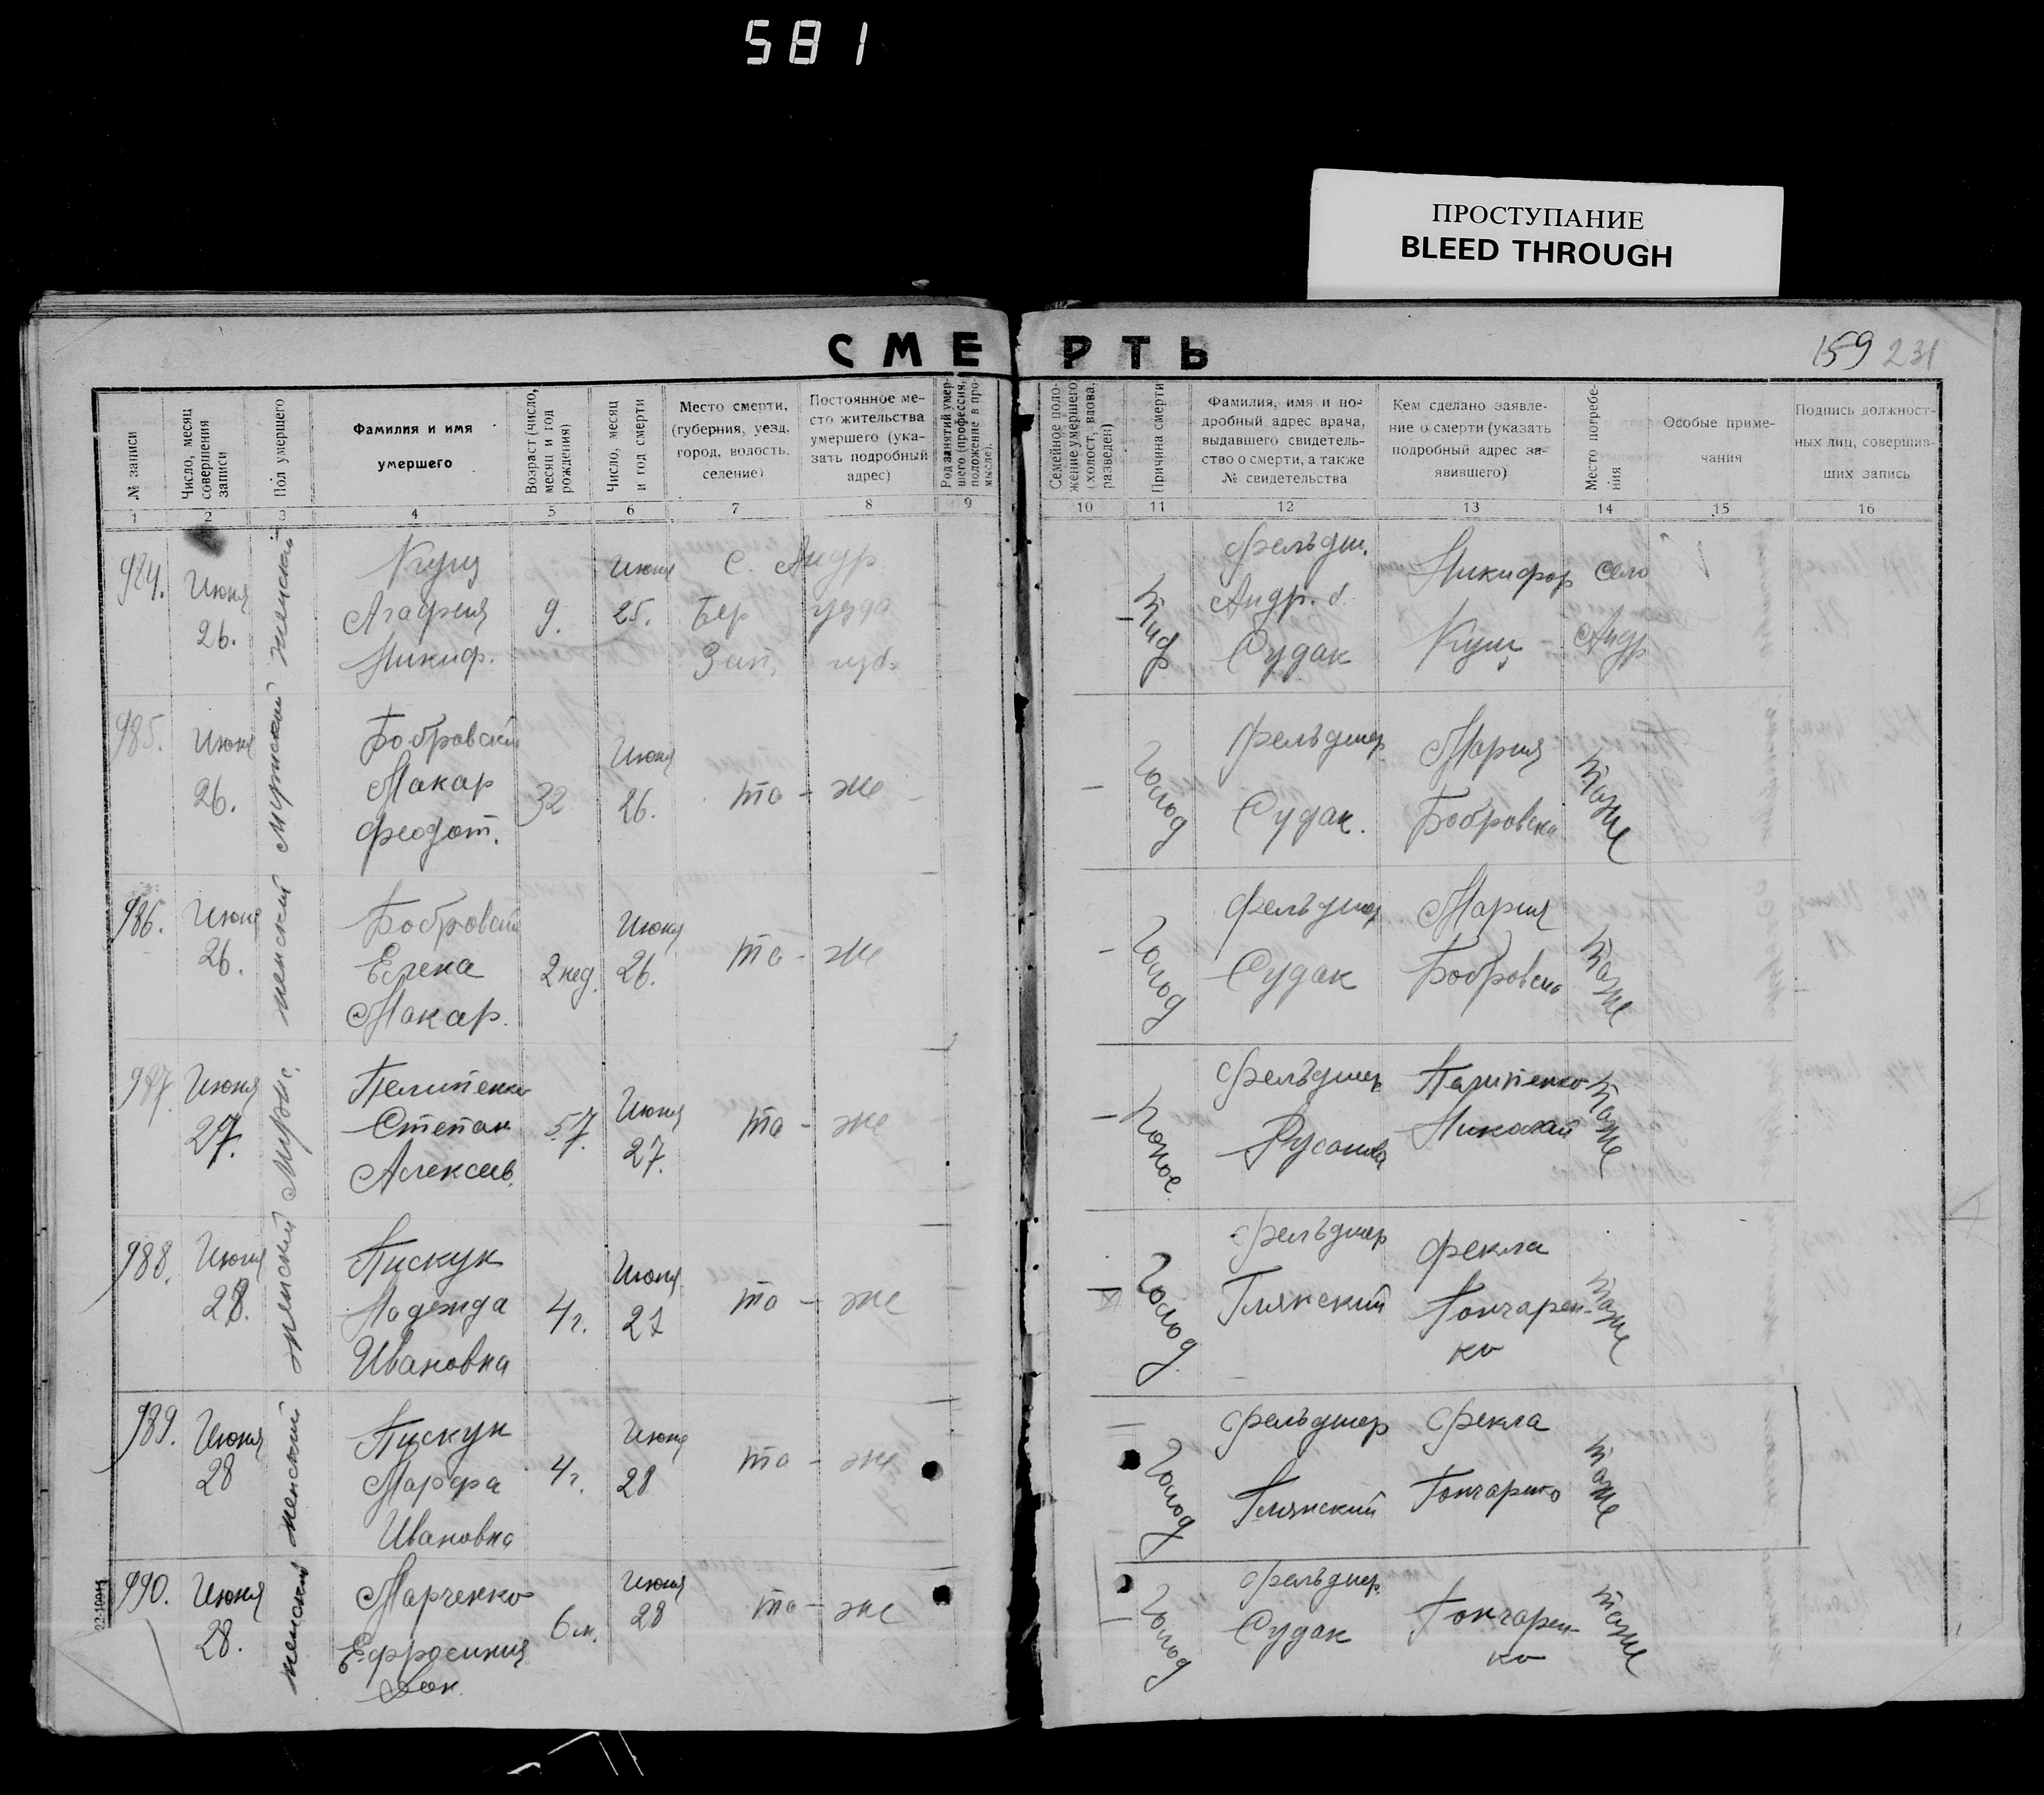 581
ПРОСТУПАНИЕ
BLEED THROUGH
СМЕРТЬ
159 231
№ записи
Число, месяц совершения записи
Пол умершего
Фамилия и имя умершего
Возраст (число, месяц и год рождения)
Число, месяц и год смерти
Место смерти, (губерния, уезд, город, волость, селение)
Постоянное место жительства умершего (указать подробный адрес)
Род занятий умершего (профессия, положение в промысле).
Семейное положение умершего (холост, вдова, разведен)
Причина смерти
Фамилия, имя и подробный адрес врача, выдавшего свидетельство о смерти, а также № свидетельства
Кем сделано заявление о смерти (указать подробный адрес заявившего)
Место погребения
Особые примечания
Подпись должностных лиц, совершивших запись
1 2 3 4 5 6 7 8 9 10 11 12 13 14 15 16
984. Июня 26. женский
Кущ
Агафия
Никиф.
9. Июня 25.
С. Андр.
Бер уезда
Зап. губ.
– Тиф
Фельдш.
Андр. б.
Судак
Никифор
Кущ
село
Андр
985. Июня 26. мужской
Бобровский
Макар
Феодот.
32 Июня 26. то - же
– голод
Фельдшер
Судак.
Мария
Бобровска
тоже
986. Июня 26. женский
Бобровск
Елена
Макар.
2 нед. Июня 26. то - же
– голод
Фельдшер
Судак
Мария
Бобровска
тоже
987. Июня 27. Мужс.
Пелипенко
Степан
Алексеев.
57. Июня 27. то - же
– Понос.
Фельдшер
Русанова
Пелипенко
Николай
тоже
988. Июня 28. женский
Пискун
Надежда
Ивановна
4 г. Июня 27 то - же
голод.
Фельдшер
Глянский
Фекла
Гончарен-
ко
тоже
989. Июня 28 женский
Пискун
Марфа
Ивановна
4 г. Июня 28 то - же
– голод
Фельдшер
Глянский
Фекла
Гончаренко
тоже
990. Июня 28. женский
Марченко
Ефросиния
6 м. Июня 28 то - же
– голод
Фельдшер.
Судак
Гончарен-
ко
тоже